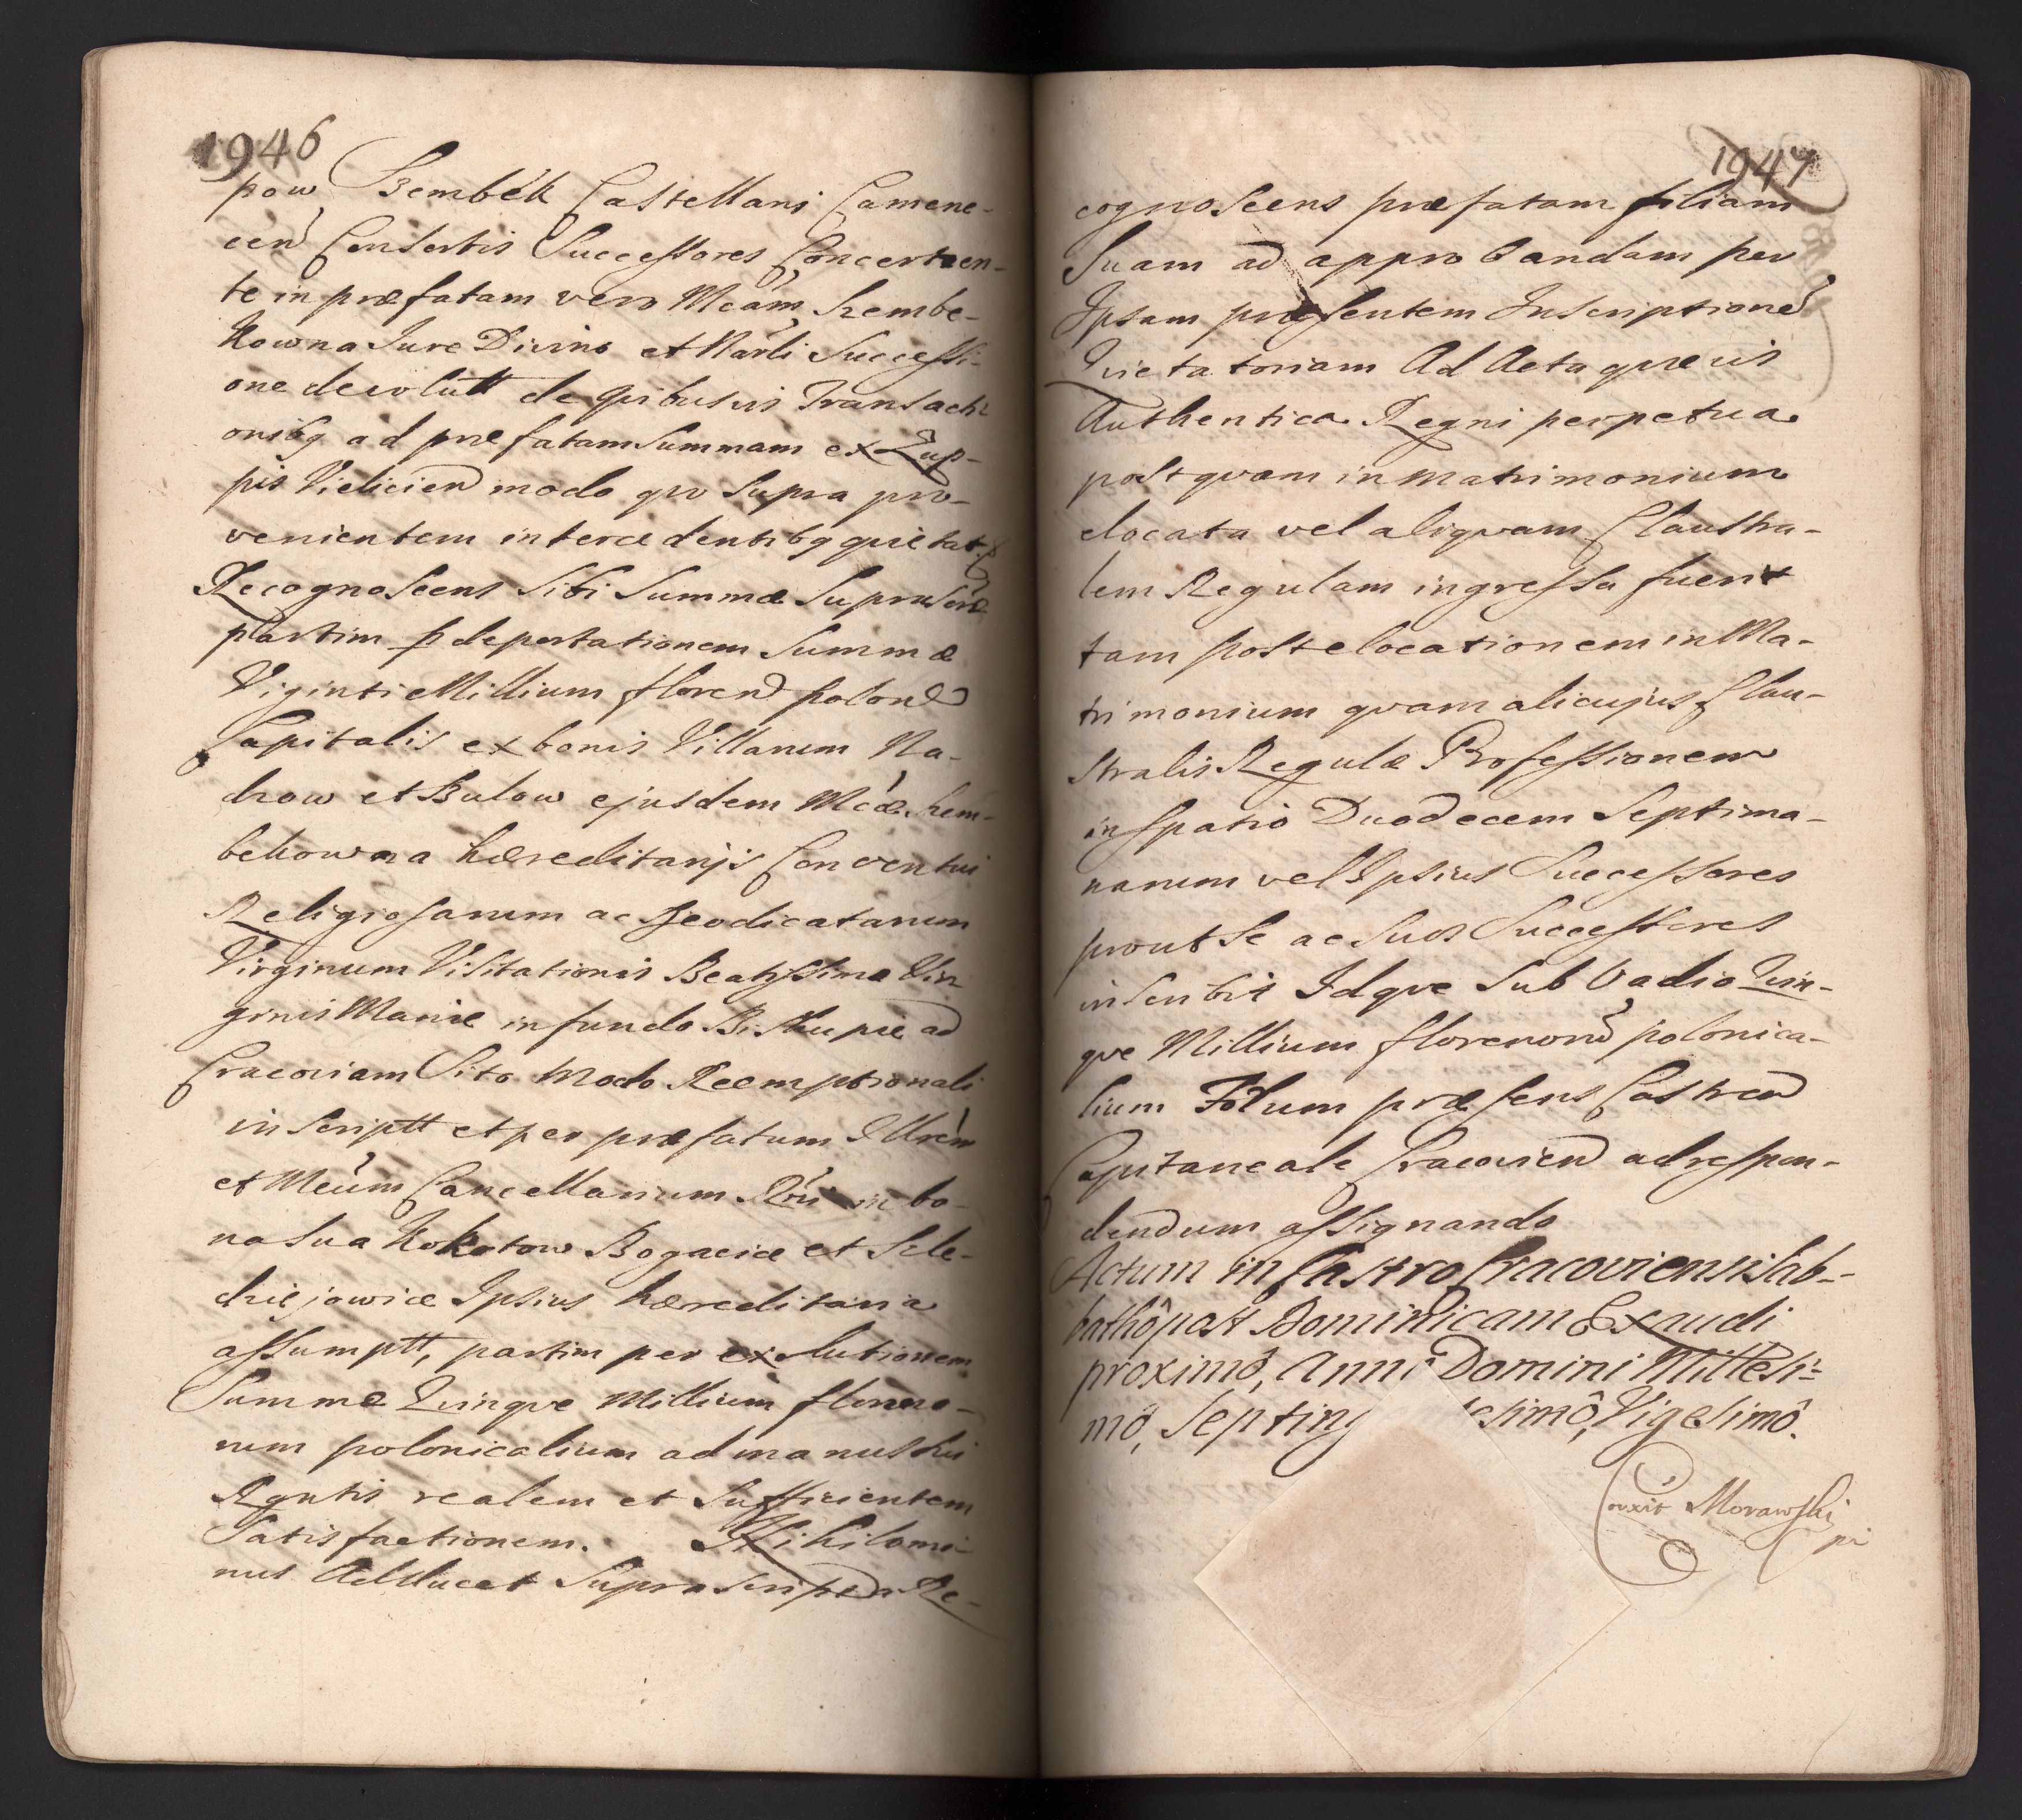 1946
pow Szembek Castellani Camene-
cen Consortis Successores Concerten-
te in præfatam vero Mcam Szembe-
kowna Jure Divino et Narli Successi-
one devolutt de quibusvis Transacti
onibq ad præfatam Summam ex Zup-
pis Vielicien modo quo supra pro-
venientem intercedentibq quietat
Recognoscens Sibi Summæ Suprascræ
partim p deportationem Summæ
Viginti Millium floren polon
Capitalis ex bonis Villarum Na-
drow et Bulow ejusdem Mcæ Szem-
bekowna hæreditarijs Conventui
Religiosarum ac Deodicatarum
Virginum Visitationis Beatissimæ Vir
ginis Mariæ in fundo Biskupie ad
Cracoviam Sito Modo Reemptionali
inscriptt et per præfatum Illrem
et Mcum Cancellarium Rni in bo-
na Sua Kokotow Bogacice et Scle-
dziejowice Ipsius hæreditaria
assumptt, partim per exolutionem
Summæ Quinque Millium floreno-
rum polonicalium ad manus hui
Rgntis realem et Sufficientem
Satisfactionem. Nihilomi
nus Adducet Suprascripta Re-
1947
cognoscens præfatam filiam
Suam ad approbandam per
Ipsam præsentem Inscriptione
Quietatoriam Ad Acta quævis
Authentica Regni perpetua
postquam in matrimonium
elocata vel aliquam Claustra-
lem Regulam ingressa fuerit
tam post elocationem in Ma-
trimonium quam alicujus Clau-
stralis Regulæ Professionem
in Spatio Duodecem Septima-
narum vel Ipsius Successores
prout Se ac Suos Successores
inscribit Idque Sub Vadio Quin-
que Millium florenorum polonica-
lium Forum præsens Castren
Capitaneale Cracovien ad respon-
dendum assignando
Actum in Castro Cracoviensi Sab-
bathô post Dominicam Exaudi
proximô, Anno Domini Millesi-
mô, Septing esimô, Vigesimô.
Conxit Morawski